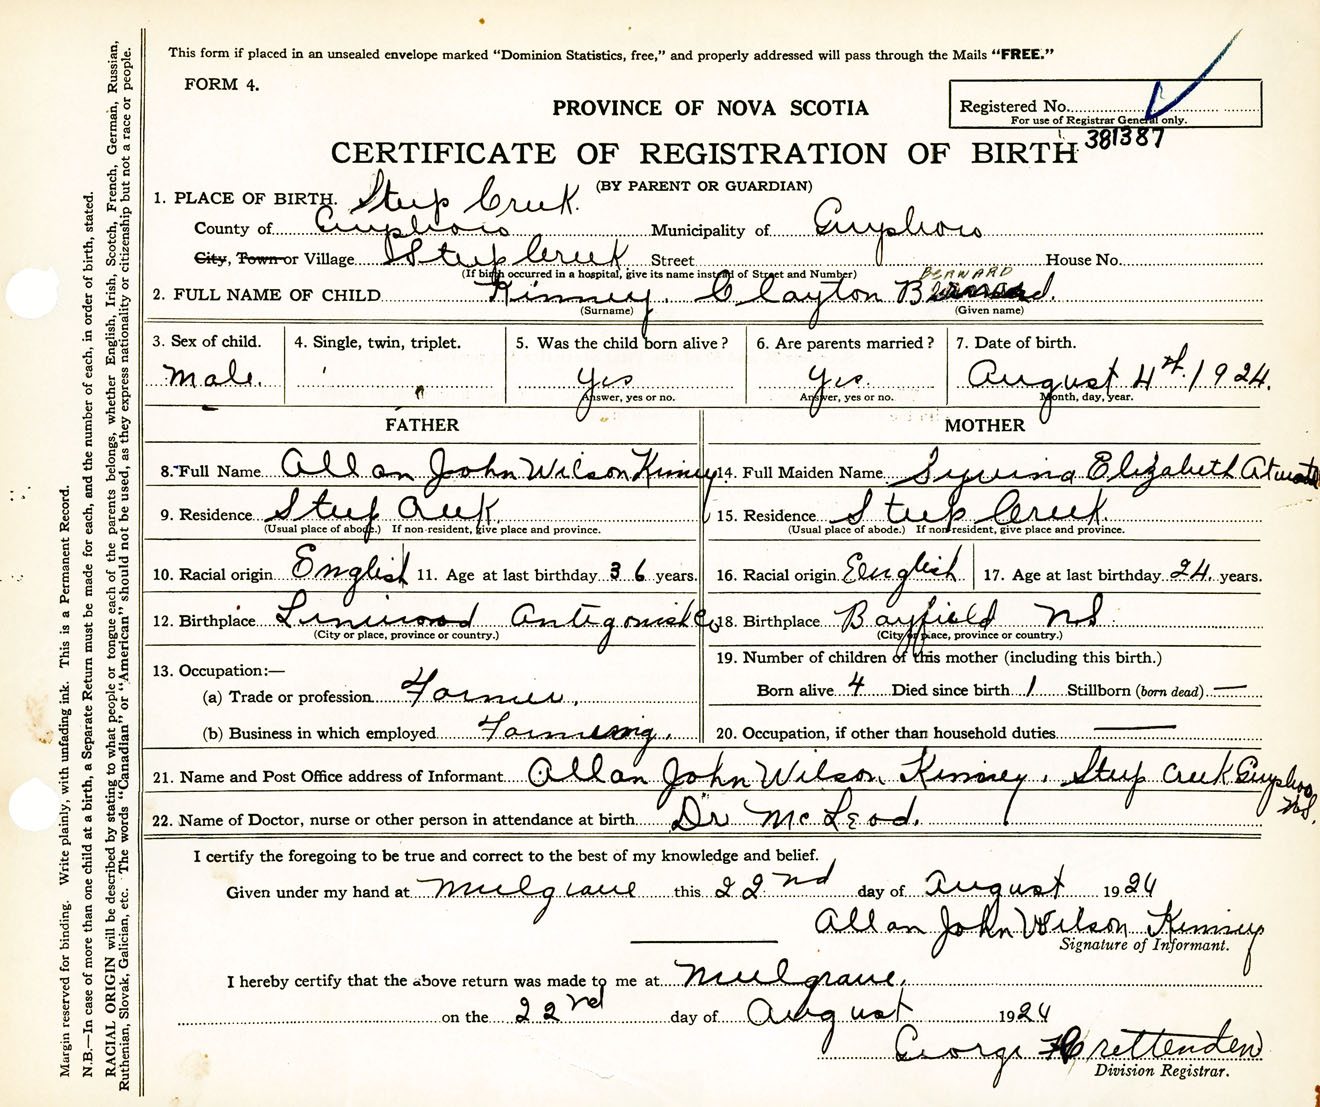 This form if placed in an unsealed envelope marked “Dominion Statistics, free,” and properly addressed will pass through the Mails “FREE.”
FORM 4.
Registered No.
For use of Registrar General only.
381387
PROVINCE OF NOVA SCOTIA
CERTIFICATE OF REGISTRATION OF BIRTH
(BY PARENT OR GUARDIAN)
1. PLACE OF BIRTH. Steep Creek.
County of Guysboro Municipality of Guysboro
City, Town or Village Steep Creek Street House No.
(If birth occurred in a hospital, give its name instead of Street and Number)
BERNARD
2. FULL NAME OF CHILD Kinney, Clayton Bernard.
(Surname) (Given name)
3. Sex of child. 4. Single, twin, triplet. 5. Was the child born alive? 6. Are parents married? 7. Date of birth.
Male. Yes Yes. August 4th. 1924.
Answer, yes or no. Answer, yes or no. Month, day, year.
FATHER MOTHER
8. Full Name Allan John Wilson Kinney 14. Full Maiden Name Elizabeth
9. Residence Steep Creek 15. Residence Steep Creek.
(Usual place of abode.) If non-resident, give place and province. (Usual place of abode.) If non-resident, give place and province.
10. Racial origin English 11. Age at last birthday 36 years. 16. Racial origin English 17. Age at last birthday 24. years.
12. Birthplace Linwood Antigonish Co 18. Birthplace Bayfield NS.
(City or place, province or country.) (City or place, province or country.)
13. Occupation:— 19. Number of children of this mother (including this birth.)
(a) Trade or profession Farmer. Born alive 4 Died since birth 1 Stillborn (born dead) —
(b) Business in which employed Farming. 20. Occupation, if other than household duties —
21. Name and Post Office address of Informant Allan John Wilson Kinney, Steep Creek Guysboro
NS.
22. Name of Doctor, nurse or other person in attendance at birth Dr McLeod.
I certify the foregoing to be true and correct to the best of my knowledge and belief.
Given under my hand at Mulgrave this 22nd day of August 1924
Allan John Wilson Kinney
Signature of Informant.
I hereby certify that the above return was made to me at Mulgrave.
on the 22nd day of August 1924
George Crettenden
Division Registrar.
Margin reserved for binding. Write plainly, with unfading ink. This is a Permanent Record.
N.B.—In case of more than one child at a birth, a Separate Return must be made for each, and the number of each, in order of birth, stated.
RACIAL ORIGIN will be described by stating to what people or tongue each of the parents belongs, whether English, Irish, Scotch, French, German, Russian,
Ruthenian, Slovak, Galician, etc. The words “Canadian” or “American” should not be used, as they express nationality or citizenship but not a race or people.